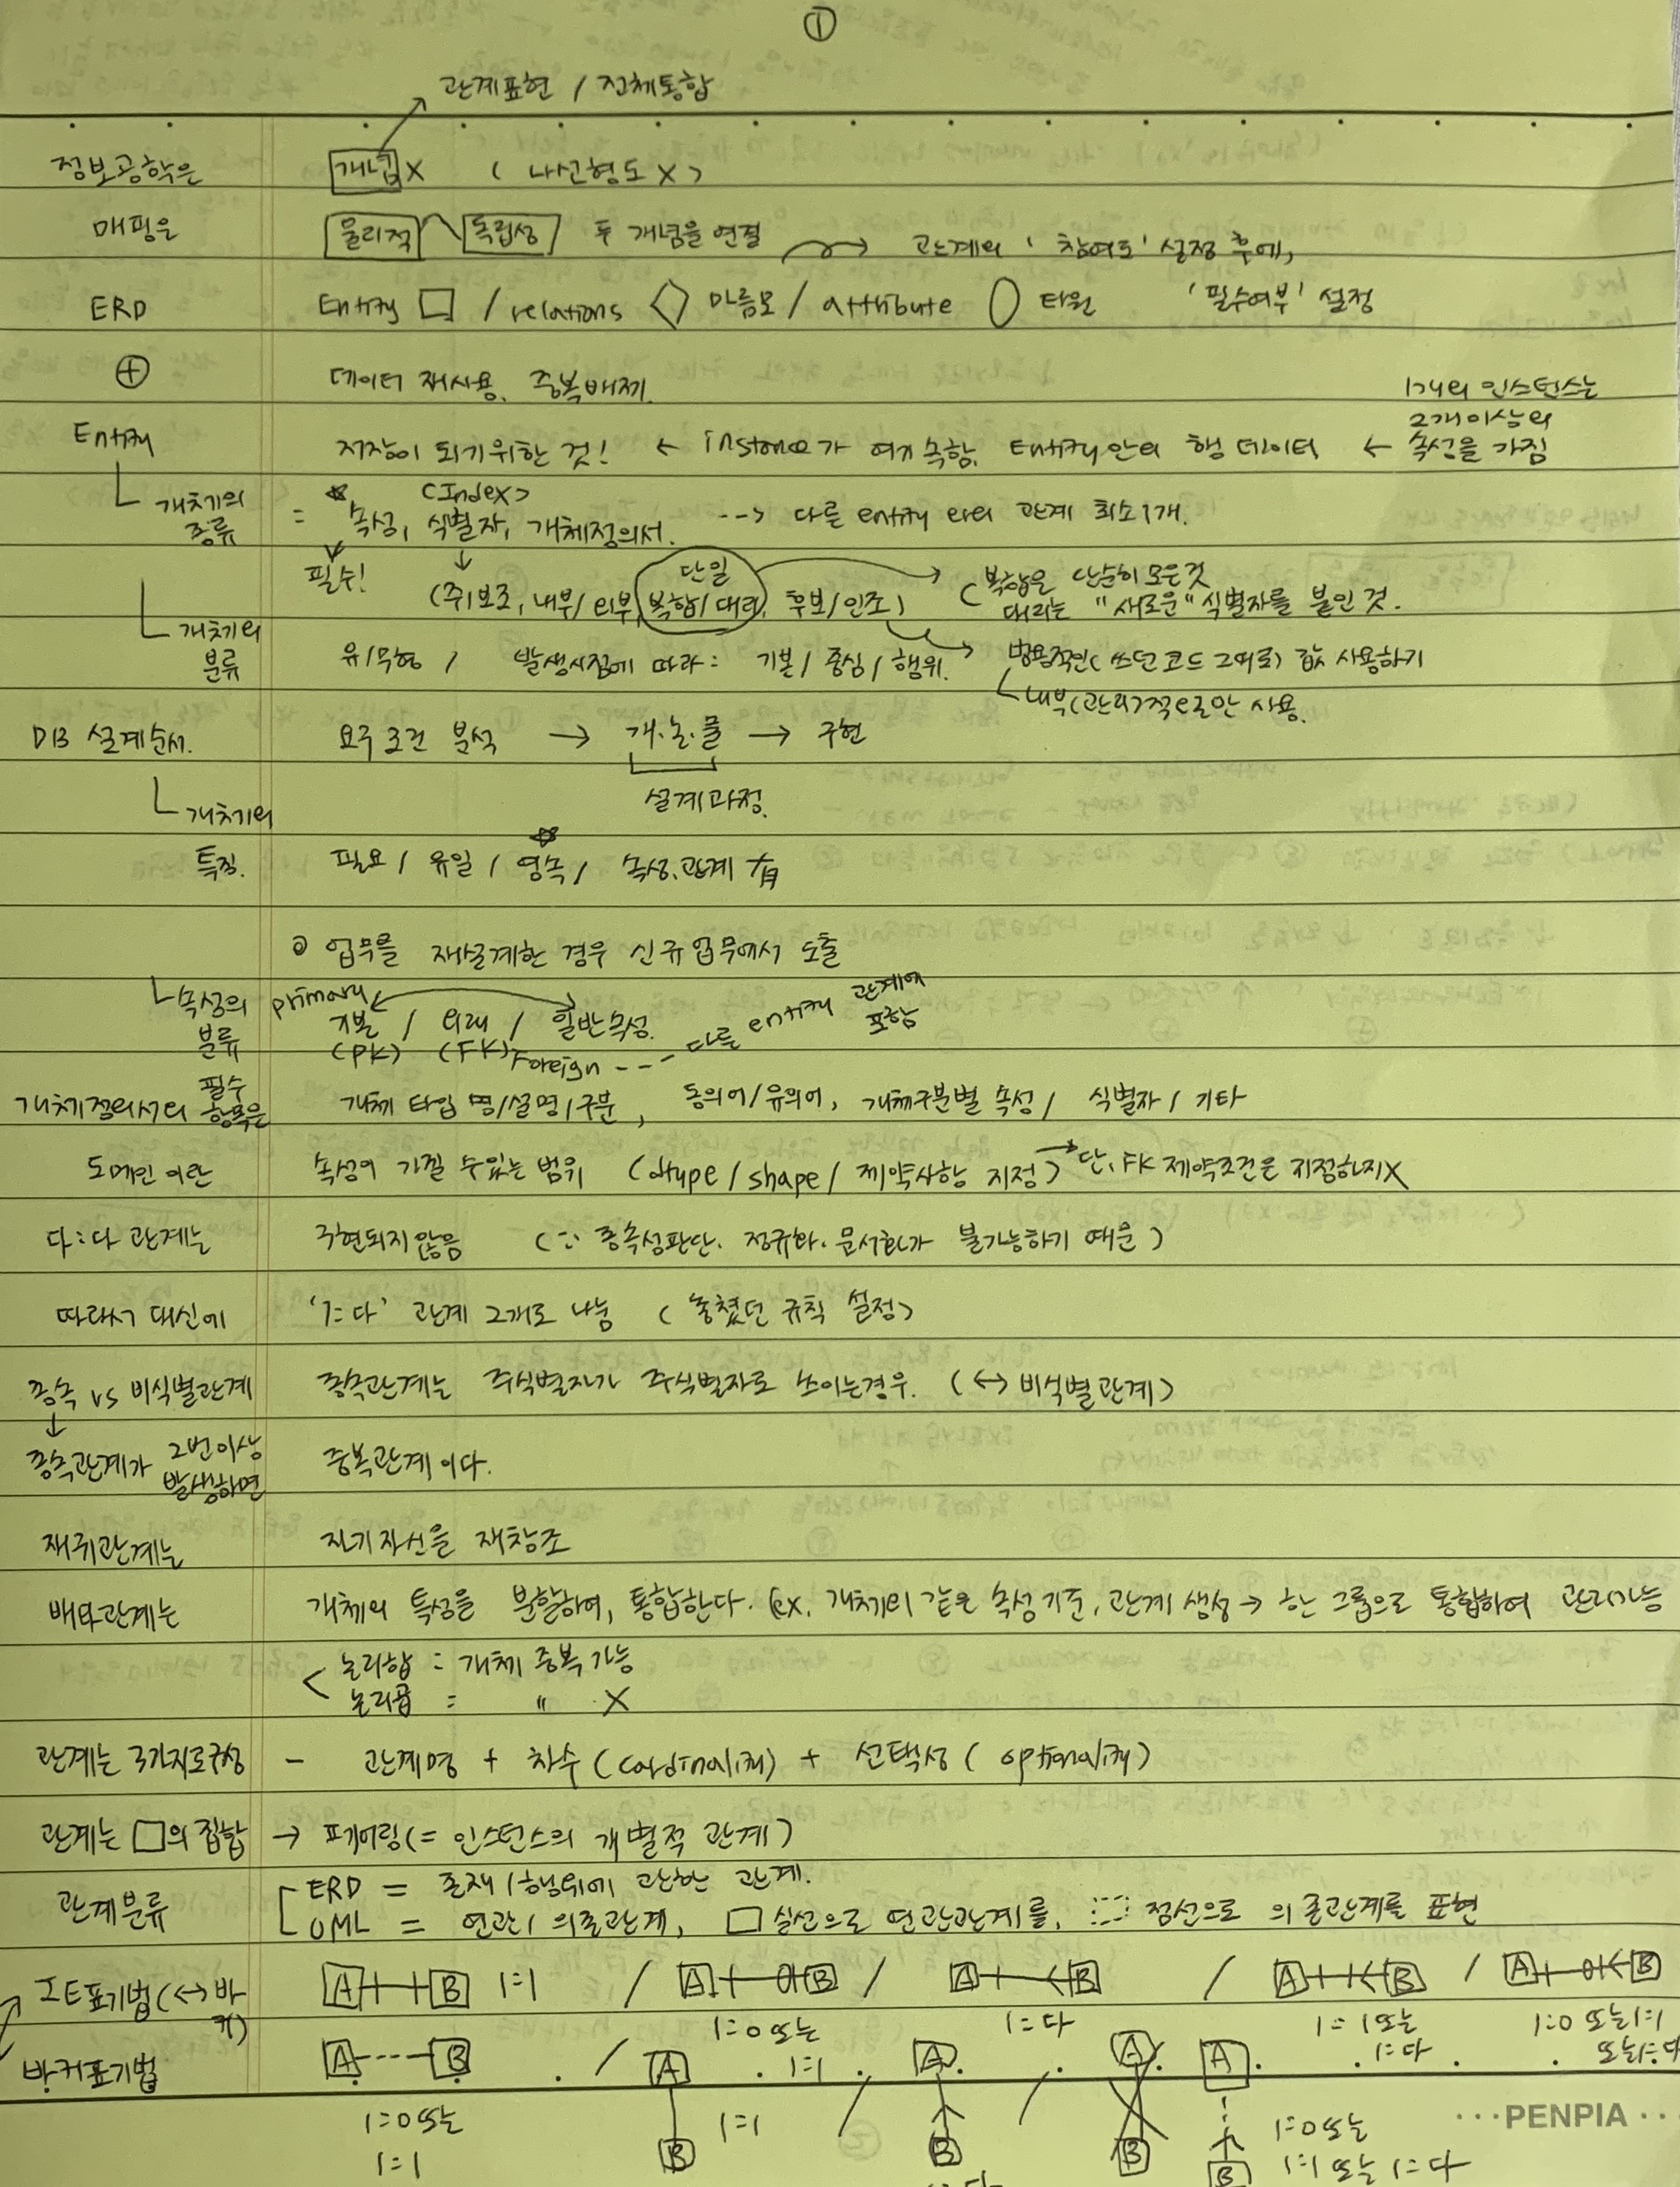 ①
관계표현 / 전체통합
정보공학은 개념X ( 나선형도 X )
매핑은 물리적 독립성 두 개념을 연결 → 관계의 '참여도' 설정 후에,
ERD Entity □ / relations ◇ 마름모 / attribute ○ 타원 '필수여부' 설정
⊕ 데이터 재사용, 중복배제. 1개의 인스턴스는
Entity 저장이 되기위한 것! ← instance가 여기 속함. Entity안의 행 데이터 ← 2개이상의 속성을 가짐
개체의 종류 = ☆ 속성, 식별자, 개체정의서. <Index> --> 다른 entity 와의 관계 최소1개.
필수! (주/보조, 내부/외부, 복합/대리, 후보/인조) 단일 → ( 복합은 단순히 모은것
대리는 "새로운" 식별자를 붙인 것.
개체의 분류 유/무형 / 발생시점에 따라: 기본/ 중심/ 행위. → 범용적인(쓰던코드 그대로) 값 사용하기
내부(관리)적으로만 사용.
DB 설계순서. 요구 조건 분석 → 개·논·물 → 구현
설계과정.
개체의 특징. 필요 / 유일 / 영속 / 속성.관계 有
☆
◎ 업무를 재설계한 경우 신규업무에서 도출
속성의 분류 primary 기본 / 외래 / 일반속성.
(PK) (FK) Foreign --- 다른 entity 관계에 포함
개체정의서의 필수 항목은 개체 타입 명/설명/구분, 동의어/유의어, 개체구분별 속성/ 식별자 / 기타
도메인 이란 속성이 가질 수있는 범위 (dtype / shape / 제약사항 지정) → 단, FK 제약조건은 지정하지X
다:다 관계는 구현되지 않음 (∵ 종속성판단. 정규화. 문서화가 불가능하기 때문)
따라서 대신에 '1:다' 관계 2개로 나눔 ( 놓쳤던 규칙 설정)
종속 vs 비식별관계 종속관계는 주식별자가 주식별자로 쓰이는경우. (↔ 비식별관계)
↓
종속관계가 2번이상 발생하면 중복관계이다.
재귀관계는 자기자신을 재참조
배타관계는 개체의 특성을 분할하여, 통합한다. (ex. 개체의 같은 속성기준, 관계생성 → 한 그룹으로 통합하여 관리가능
< 논리합 = 개체 중복가능
논리곱 = " X
관계는 3가지로구성 - 관계명 + 차수(cardinality) + 선택성( optionality)
관계는 □의 집합 → 페어링(= 인스턴스의 개별적 관계)
관계분류 ERD = 존재 /행위에 관한 관계.
UML = 연관/ 의존관계, □실선으로 연관관계를, 점선으로 의존관계를 표현
IE표기법(↔바커) A B 1:1 / A B / A B / A B / A B
1:0 또는 1:1 1:다 1:1또는 1:다 1:0 또는1:1 또는1:다
바커표기법 A B / A / A / A A
1:0 또는 1:1 1:1 B B B B 1:0또는
1:1 또는 1:다
PENPIA